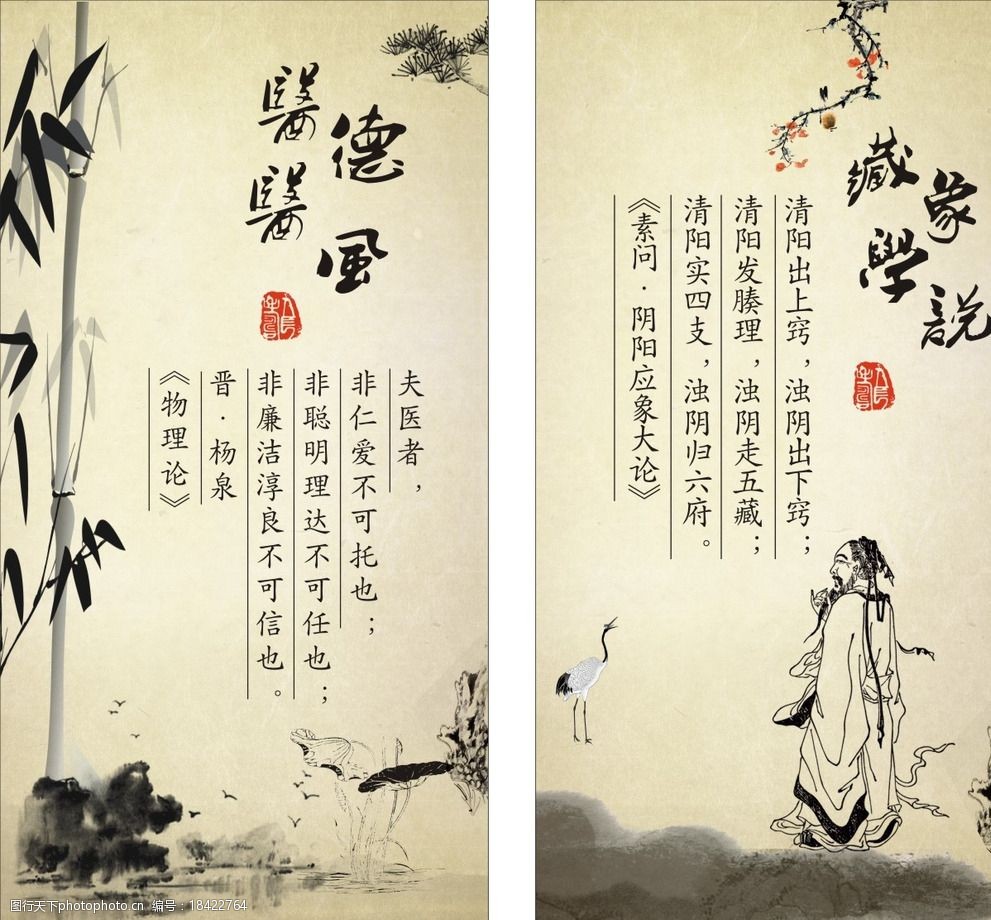 醫德
醫風
夫医者，
非仁爱不可托也；
非聪明理达不可任也；
非廉洁淳良不可信也。
晋·杨泉
《物理论》
藏象
學説
清阳出上窍，浊阴出下窍；
清阳发腠理，浊阴走五藏；
清阳实四支，浊阴归六府。
《素问·阴阳应象大论》
图行天下photophoto.cn 编号:18422764